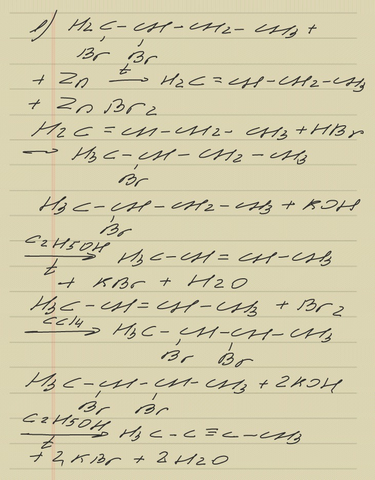 е) H2C-CH-CH2-CH3 +
Br Br
+ Zn t→ H2C=CH-CH2-CH3
+ ZnBr2
H2C=CH-CH2-CH3+HBr
→ H3C-CH-CH2-CH3
Br
H3C-CH-CH2-CH3 + KOH
Br
C2H5OH
t→ H3C-CH=CH-CH3
+ KBr + H2O
H3C-CH=CH-CH3 + Br2
CCl4→ H3C-CH-CH-CH3
Br Br
H3C-CH-CH-CH3 + 2KOH
Br Br
C2H5OH
t→ H3C-C≡C-CH3
+ 2KBr + 2H2O